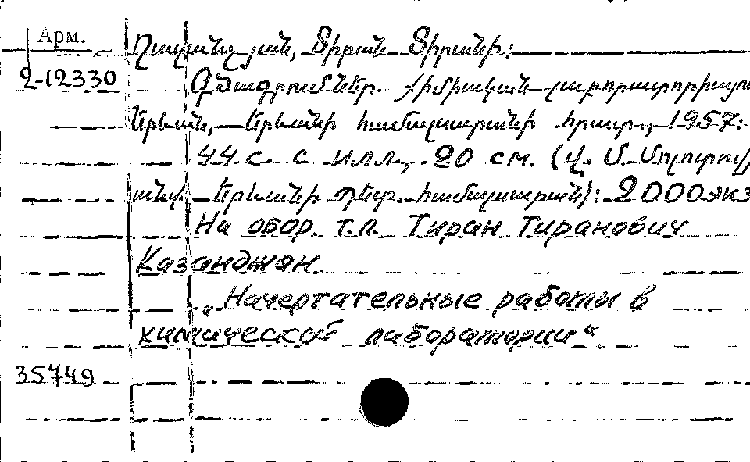 Арм.
Ղազանչյան, Տիրան Տիրանի:
2-12330
Գծագրումներ. քիմիական լաբորատորիայում
Երևան, Երևանի համալսարանի հրատ., 1957:
44 с. с илл., 20 см. (Վ. Մ. Մոլոտովի
անվ. Երևանի պետ. համալսարան): 2000 экз
На обор. т.л. Тиран Тиранович
Казанджян
„Начертательные работы в
химической лаборатории“
35749